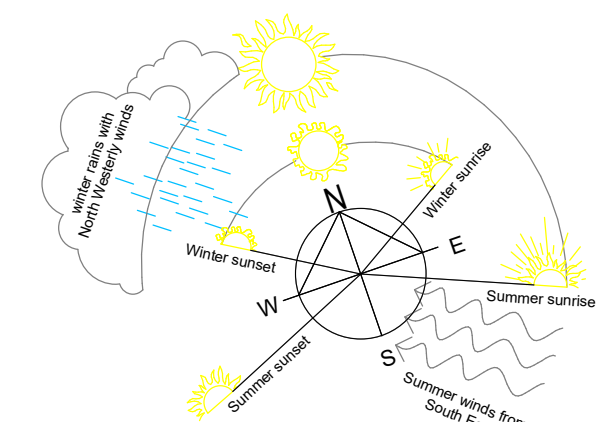 winter rains with
North Westerly winds
Winter sunrise
N
E
Winter sunset
Summer sunrise
W
S
Summer sunset
Summer winds from
South